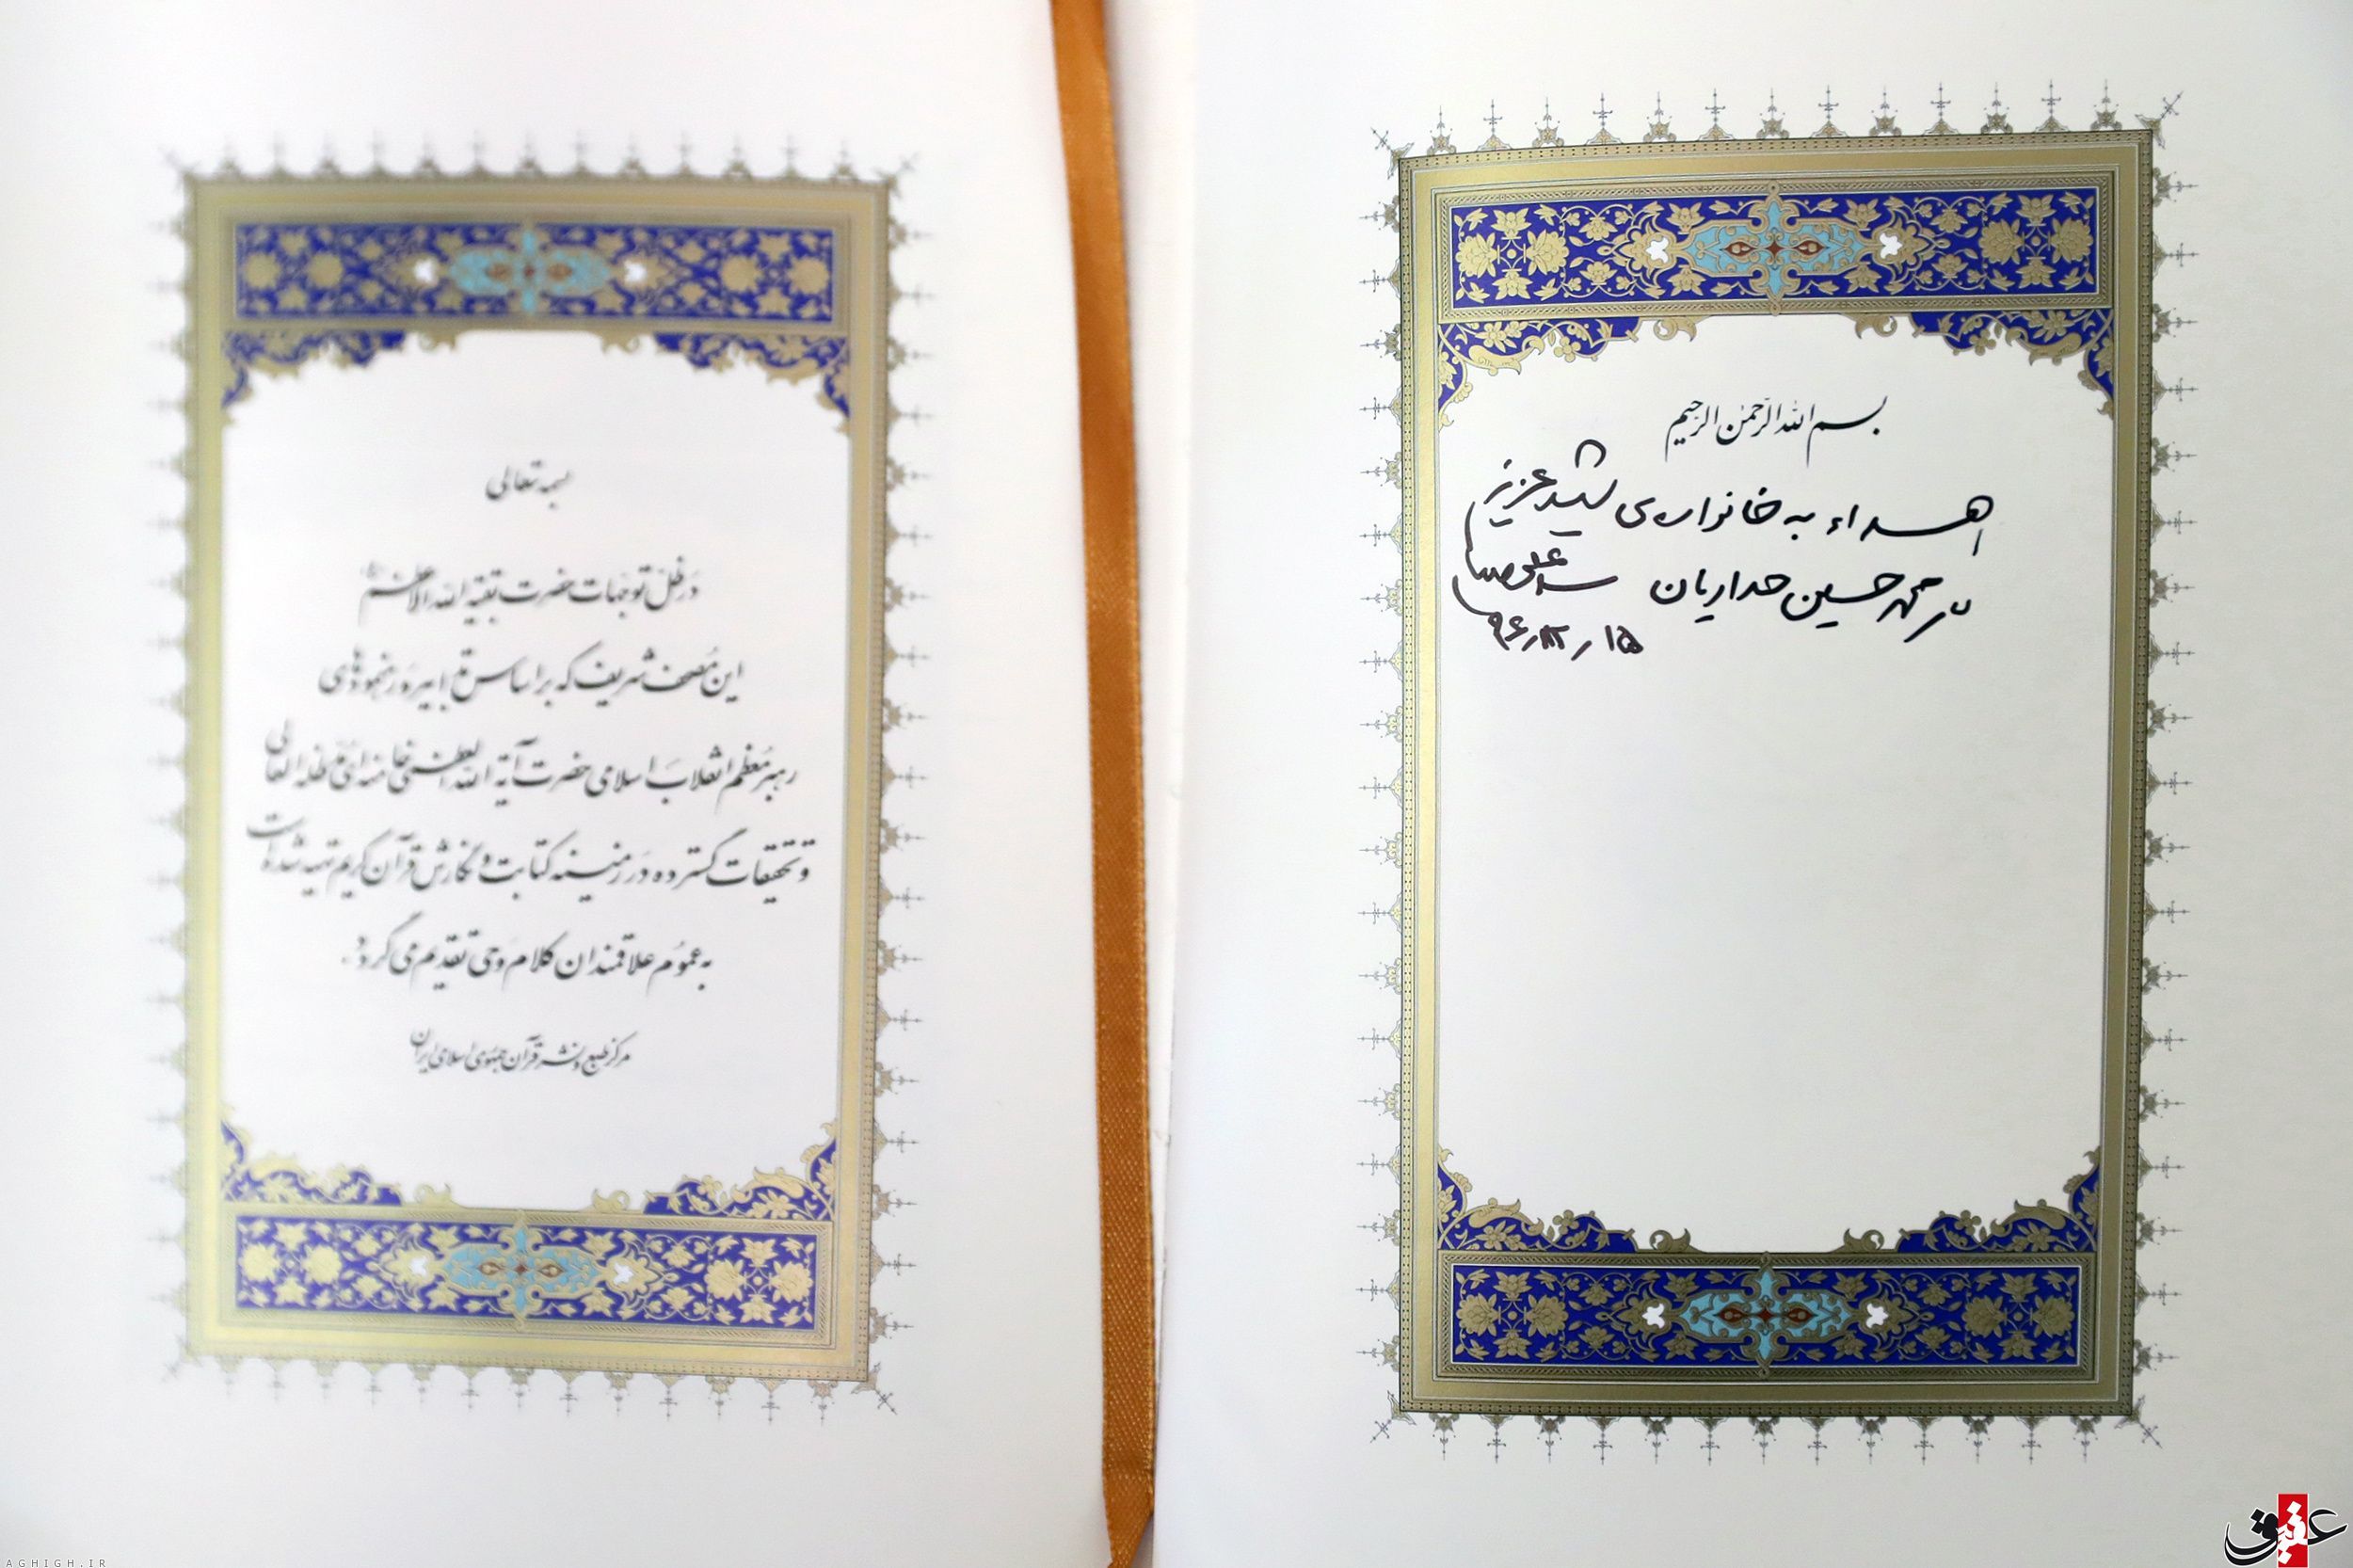 بسم الله الرّحمن الرّحیم
اهداء به خانواده‌ی شهید عزیز
محمد حسین حدادیان
سید علی خامنه‌ای
۹۶/۱۲/۱۵
بسمه تعالی
در ظلّ توجهات حضرت بقیة الله الاعظم
این مُصحف شریف که بر اساس تدابیر و رهنمودهای
رهبر معظم انقلاب اسلامی حضرت آیة الله العظمی خامنه‌ای مدّ ظله العالی
و تحقیقات گسترده در زمینه کتابت و نگارش قرآن کریم تهیه شده است
به عموم علاقمندان کلام وحی تقدیم می گردد.
مرکز طبع و نشر قرآن جمهوری اسلامی ایران
عقیق
AGHIGH.IR